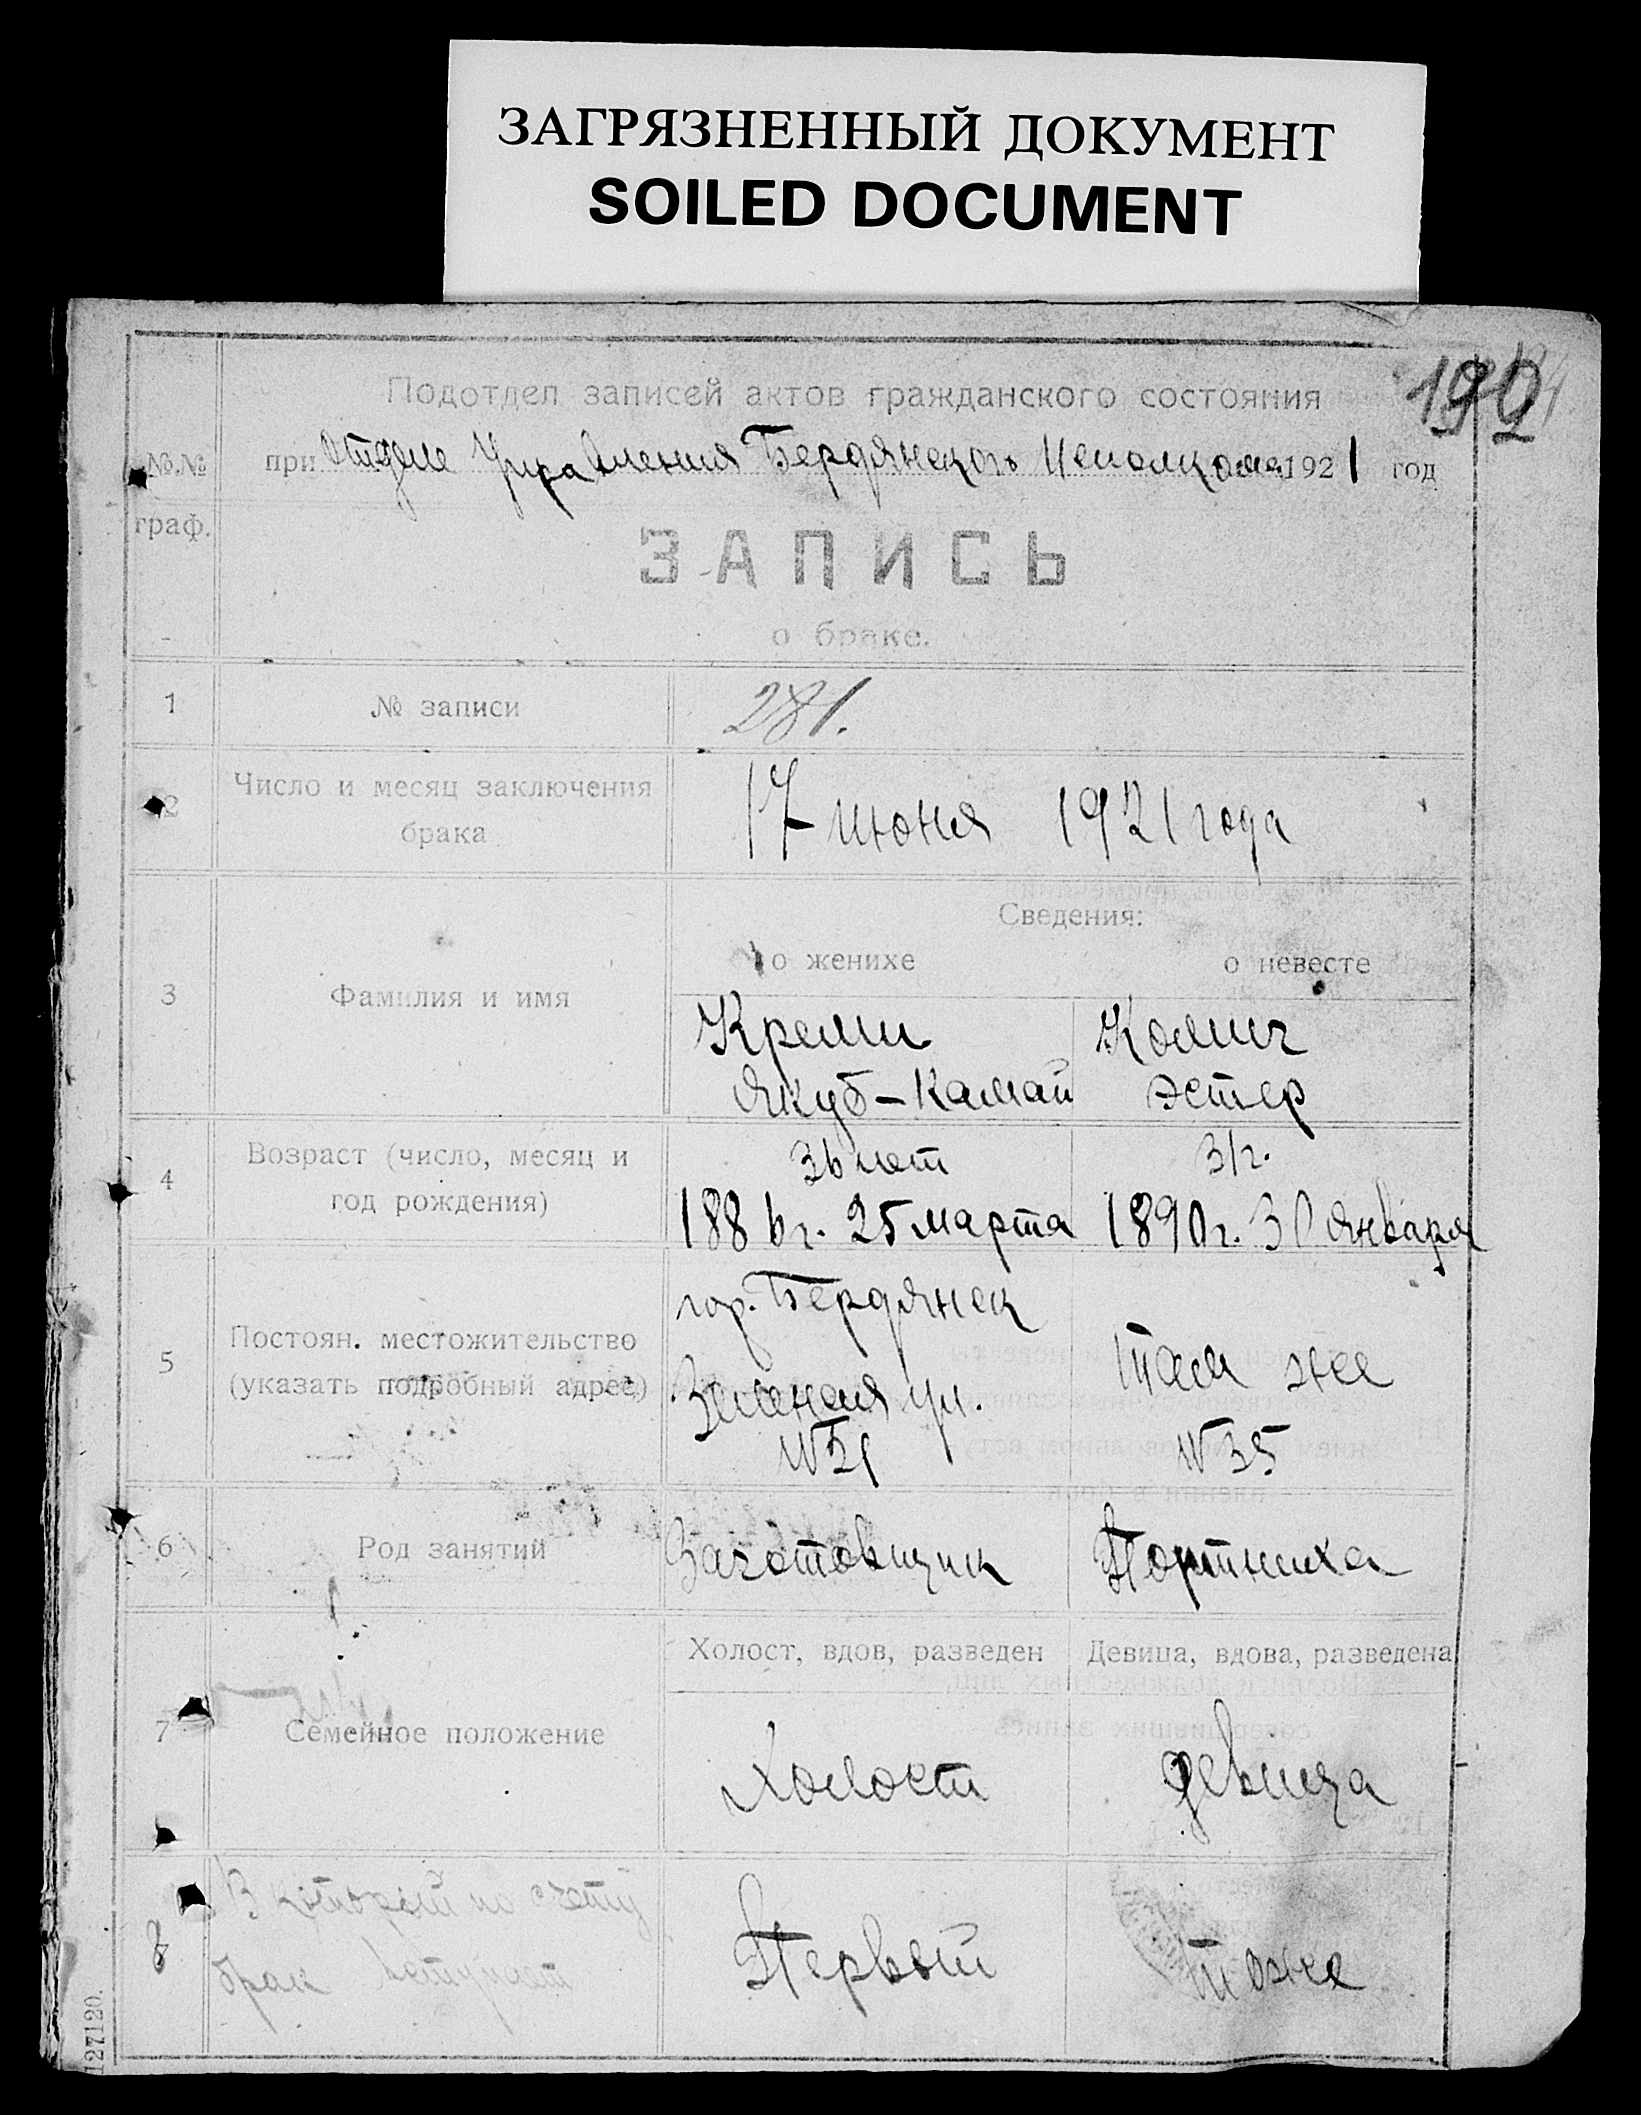 ЗАГРЯЗНЕННЫЙ ДОКУМЕНТ
SOILED DOCUMENT
Подотдел записей актов гражданского состояния
№.№ при Отделе Управления Бердянского Исполкома 1921 год
граф.
ЗАПИСЬ
о браке.
1 № записи 281.
2 Число и месяц заключения брака 17 июня 1921 года
Сведения:
о женихе о невесте
3 Фамилия и имя
Креми Комич
Якуб-Камай Эстер
4 Возраст (число, месяц и год рождения)
36 лет 31 г.
1886 г. 25 марта 1890 г. 30 января
5 Постоян. местожительство (указать подробный адрес)
гор. Бердянск
ул. Там же
№ 21 № 35
6 Род занятий Заготовщик Портниха
Холост, вдов, разведен Девица, вдова, разведена
7 Семейное положение Холост девица
8 В который по счету брак вступает Первый тоже
127120.